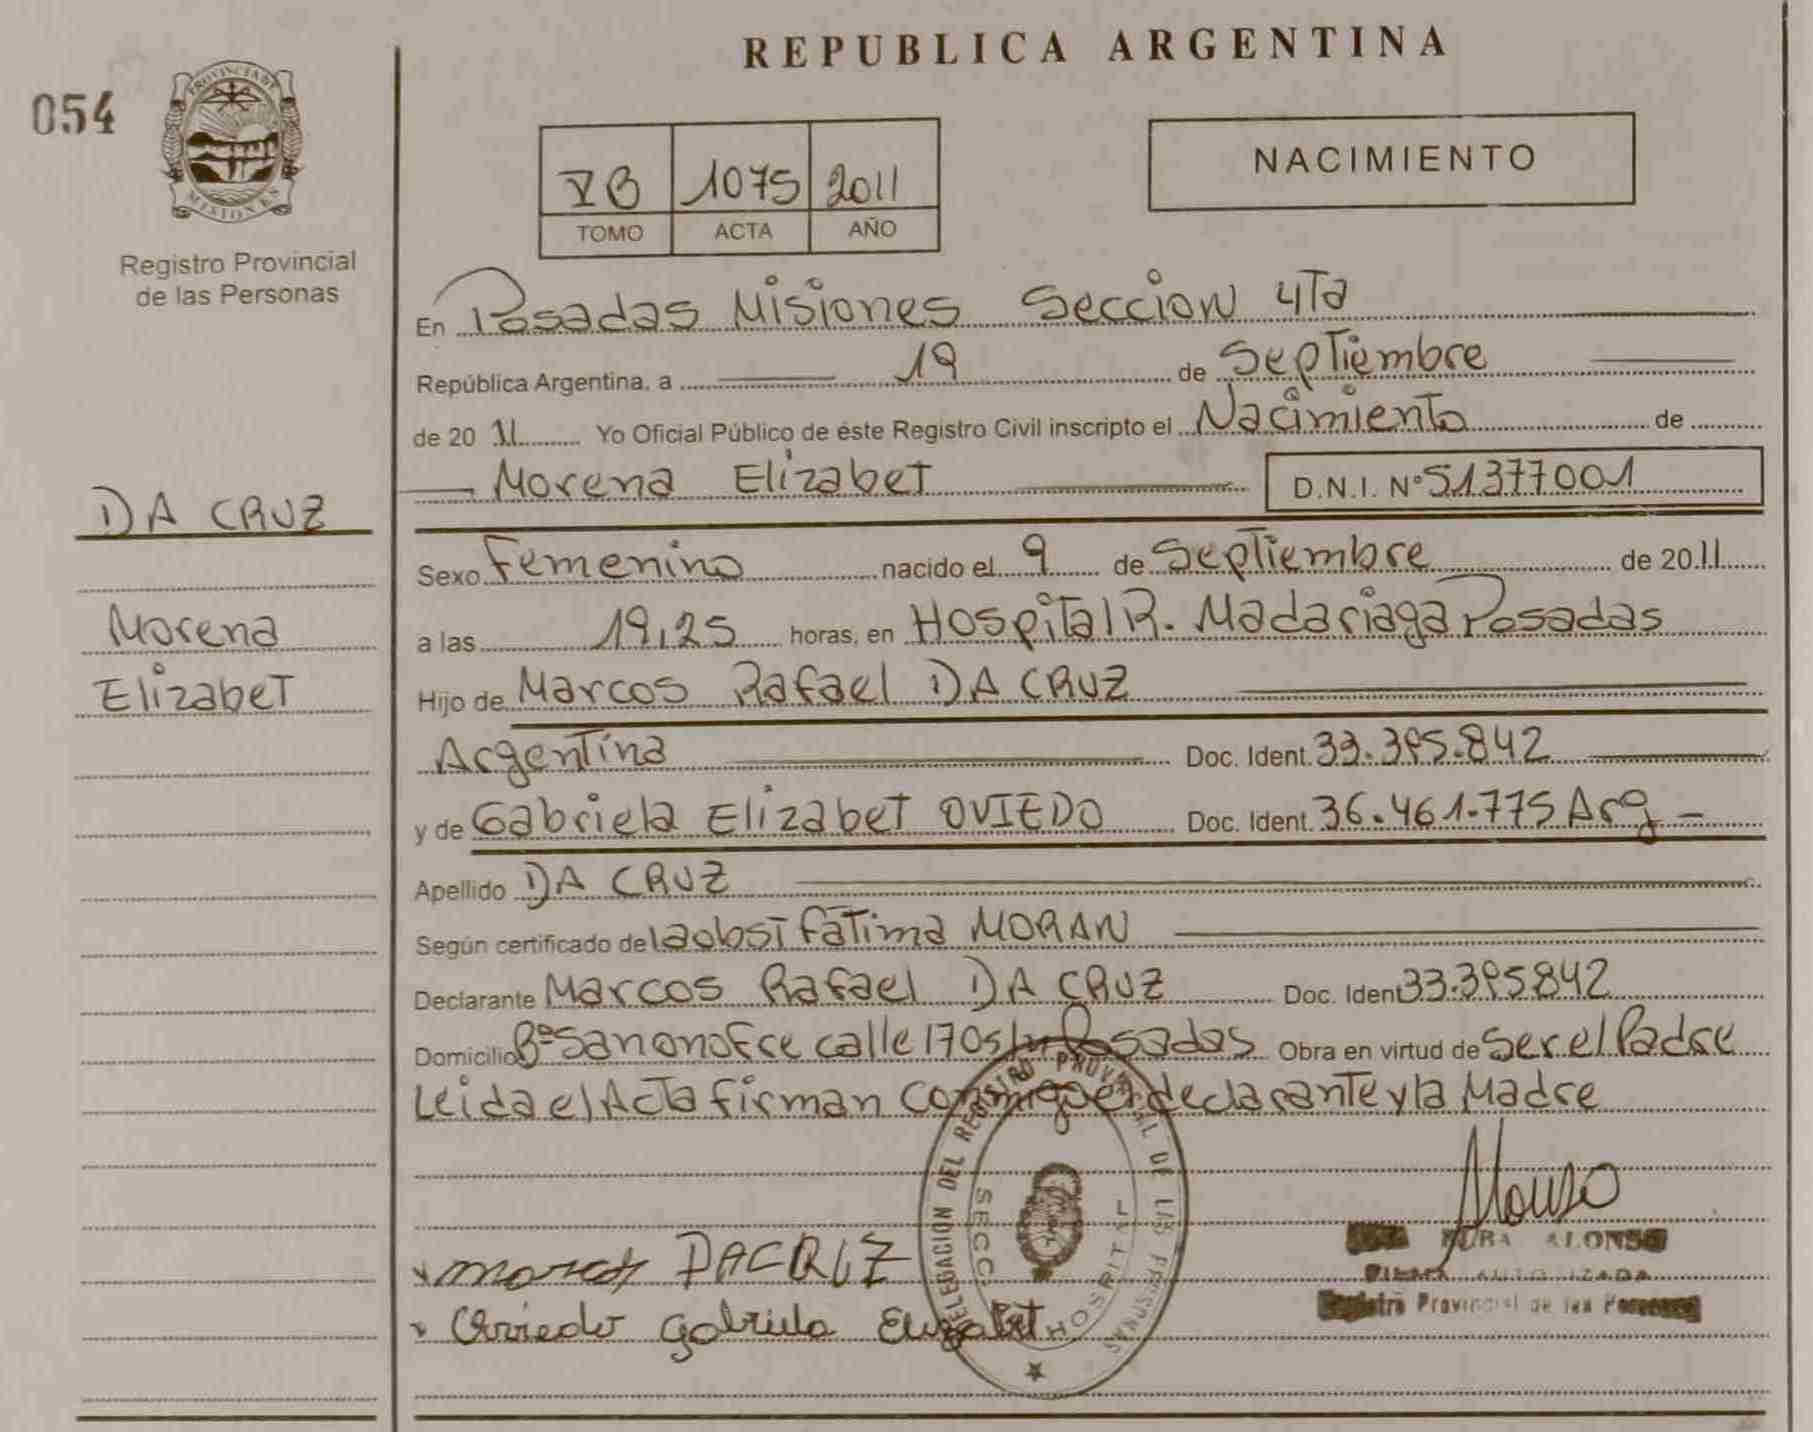 REPUBLICA ARGENTINA
054
PROVINCIA DE
MISIONES
Registro Provincial
de las Personas
VB 1075 2011
TOMO ACTA AÑO
NACIMIENTO
En Posadas Misiones Seccion 4Ta
República Argentina, a 19 de Septiembre
de 20 11 Yo Oficial Público de éste Registro Civil inscripto el Nacimiento de
Morena Elizabet D.N.I. Nº 51377001
DA CRUZ
Morena
Elizabet
Sexo Femenino nacido el 9 de Septiembre de 20 11
a las 19,25 horas, en Hospital R. Madariaga Posadas
Hijo de Marcos Rafael DA CRUZ
Argentina Doc. Ident. 33.395.842
y de Gabriela Elizabet OVIEDO Doc. Ident. 36.461.775 Arg
Apellido DA CRUZ
Según certificado de la obst Fatima MORAN
Declarante Marcos Rafael DA CRUZ Doc. Ident 33.395842
Domicilio Bº San onofre calle 170 s/n Posadas Obra en virtud de Ser el Padre
Leida el Acta firman conmigo el declarante y la Madre
DELEGACION DEL REGISTRO PROVINCIAL DE LAS PERSONAS
SECC. HOSPITAL
DACRUZ
Oviedo Gabriela Elizabet
ALONSO
FIRMA AUTORIZADA
Registro Provincial de las Personas